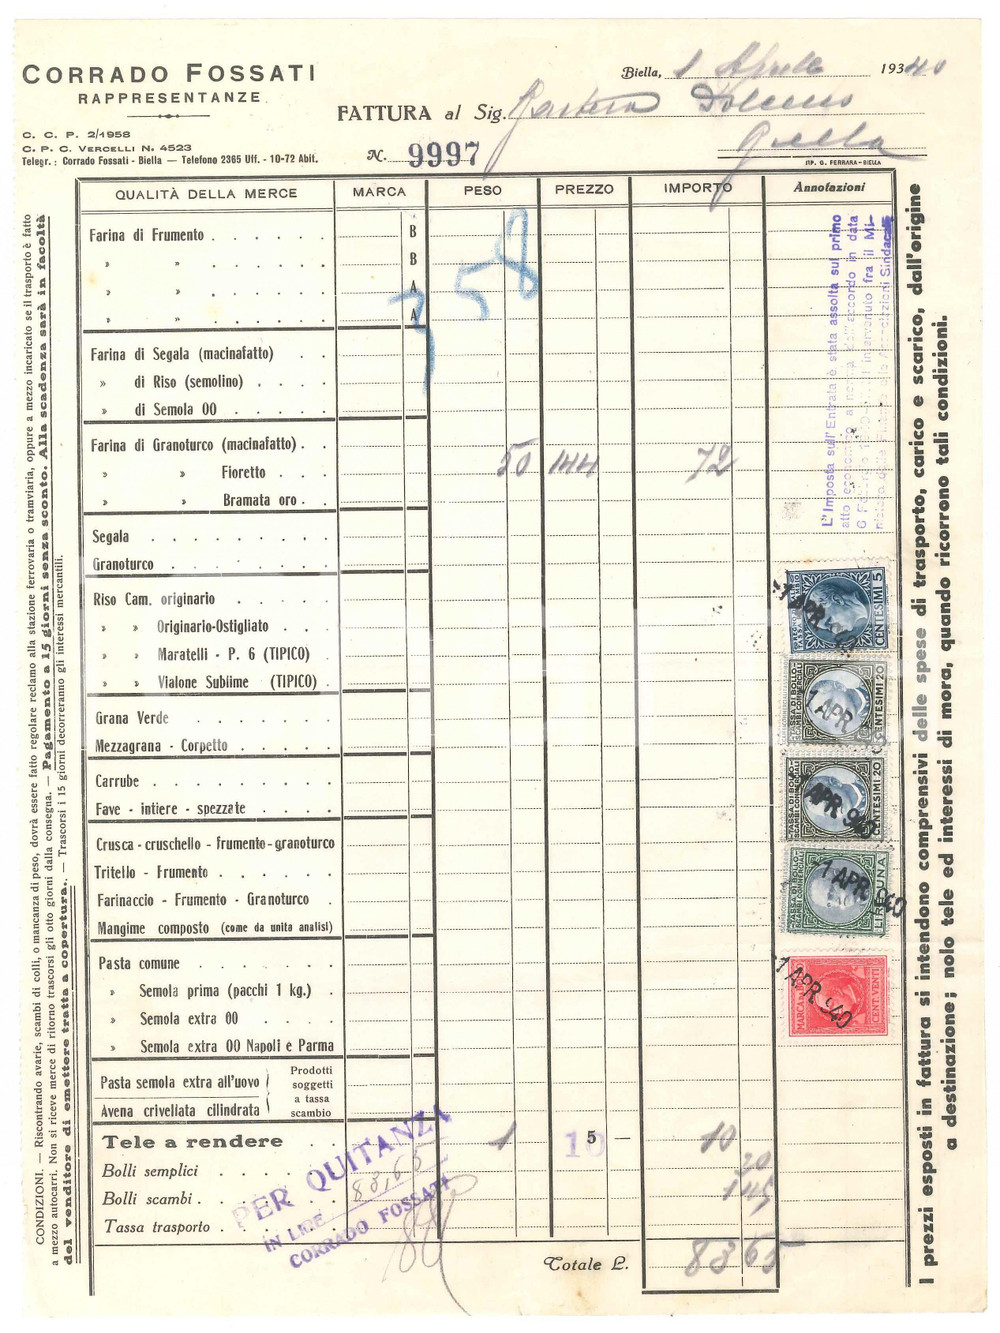 CORRADO FOSSATI
RAPPRESENTANZE
C. C. P. 2/1958
C. P. C. VERCELLI N. 4523
Telegr.: Corrado Fossati - Biella — Telefono 2365 Uff. - 10-72 Abit.
Biella, 1 Aprile 1940
FATTURA al Sig.
Biella
N. 9997
TIP. G. FERRARA - BIELLA
QUALITÀ DELLA MERCE MARCA PESO PREZZO IMPORTO Annotazioni
Farina di Frumento . . . . . . B
» » . . . . . . B
» » . . . . . . A
» » . . . . . . A
58
Farina di Segala (macinafatto) . .
» di Riso (semolino) . . . .
» di Semola 00 . . . . .
Farina di Granoturco (macinafatto) . .
» » Fioretto . . . 50 144 72
» » Bramata oro . .
Segala . . . . . . . .
Granoturco . . . . . . .
Riso Cam. originario . . . . .
» » Originario-Ostigliato . . .
» » Maratelli - P. 6 (TIPICO) .
» » Vialone Sublime (TIPICO) .
Grana Verde . . . . . .
Mezzagrana - Corpetto . . . . .
Carrube . . . . . . . .
Fave - intiere - spezzate . . . .
Crusca - cruschello - frumento-granoturco
Tritello - Frumento . . . . .
Farinaccio - Frumento - Granoturco .
Mangime composto (come da unita analisi)
Pasta comune . . . . . .
» Semola prima (pacchi 1 kg.) .
» Semola extra 00 . . . .
» Semola extra 00 Napoli e Parma
Pasta semola extra all'uovo
Avena crivellata cilindrata
Prodotti
soggetti
a tassa
scambio
Tele a rendere . . 1 10 5 — 10
Bolli semplici . . . . . . 20
Bolli scambi . . . . . . 145
Tassa trasporto . . . . .
Totale L. 83 65
PER QUITANZA
IN LIRE 83,65
CORRADO FOSSATI
L'Imposta sull'Entrata è stata assolta sul primo
CENTESIMI 5
1 APR
TASSA DI BOLLO
SCAMBI COMMERCIALI
CENTESIMI 20
1 APR
TASSA DI BOLLO
SCAMBI COMMERCIALI
CENTESIMI 20
APR 940
TASSA DI BOLLO
SCAMBI COMMERCIALI
LIRE UNA
-1 APR 940
MARCA
CENT. VENTI
-1 APR 940
CONDIZIONI. — Riscontrando avarie, scambi di colli, o mancanza di peso, dovrà essere fatto regolare reclamo alla stazione ferroviaria o tramviaria, oppure a mezzo incaricato se il trasporto è fatto
a mezzo autocarri. Non si riceve merce di ritorno trascorsi gli otto giorni dalla consegna. — Pagamento a 15 giorni senza sconto. Alla scadenza sarà in facoltà
del venditore di emettere tratta a copertura. — Trascorsi i 15 giorni decorreranno gli interessi mercantili.
I prezzi esposti in fattura si intendono comprensivi delle spese di trasporto, carico e scarico, dall'origine
a destinazione; nolo tele ed interessi di mora, quando ricorrono tali condizioni.